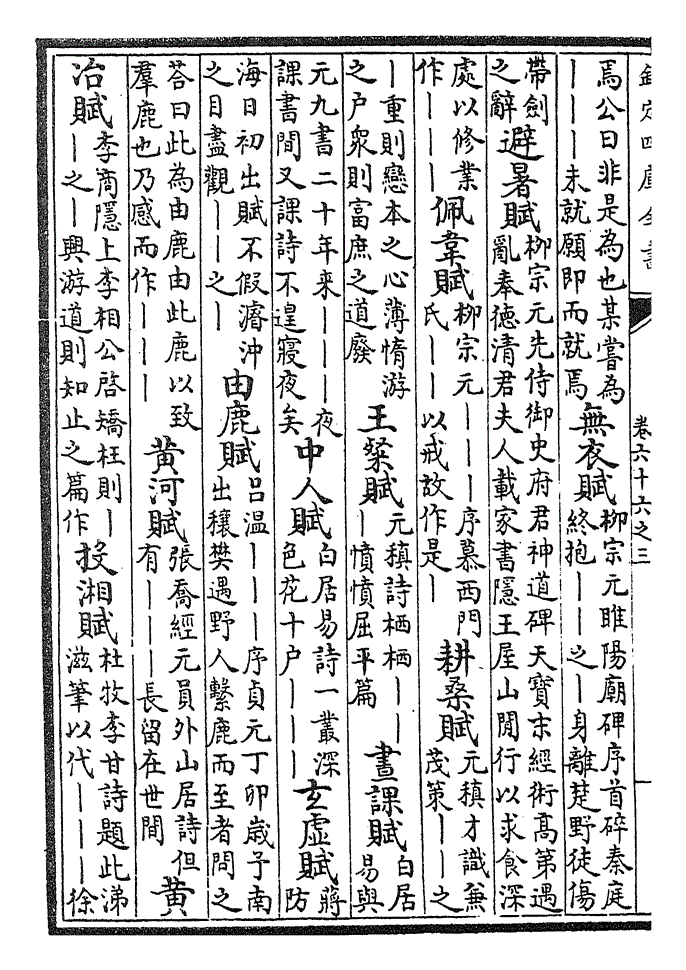 欽定四庫全書
卷六十六之三
焉公曰非是為也某嘗為
丨丨丨未就願即而就焉
無衣賦
柳宗元睢陽廟碑序首碎秦庭
終抱丨丨之丨身離楚野徒傷
帶劍
之辭
避暑賦
柳宗元先侍御史府君神道碑天寶末經術高第遇
亂奉德清君夫人載家書隱王屋山閒行以求食深
處以修業
作丨丨丨
佩韋賦
柳宗元丨丨丨序慕西門
氏丨丨以戒故作是丨
耕桑賦
元稹才識兼
茂策丨丨之
丨重則戀本之心薄惰游
之户衆則富庶之道廢
王粲賦
元稹詩栖栖丨丨
丨憤憤屈平篇
晝課賦
白居
易與
元九書二十年来丨丨丨夜
課書間又課詩不遑寢夜矣
中人賦
白居易詩一叢深
色花十户丨丨丨
玄虛賦
蔣
防
海日初出賦不假濬沖
之目盡觀丨丨之丨
由鹿賦
吕温丨丨丨序貞元丁卯歲予南
出穰樊遇野人繫鹿而至者問之
荅曰此為由鹿由此鹿以致
羣鹿也乃感而作丨丨丨
黄河賦
張喬經元員外山居詩但
有丨丨丨長留在世間
黄
冶賦
李商隱上李相公啓矯枉則丨
丨之丨興游道則知止之篇作
投湘賦
杜牧李甘詩題此涕
滋筆以代丨丨丨徐